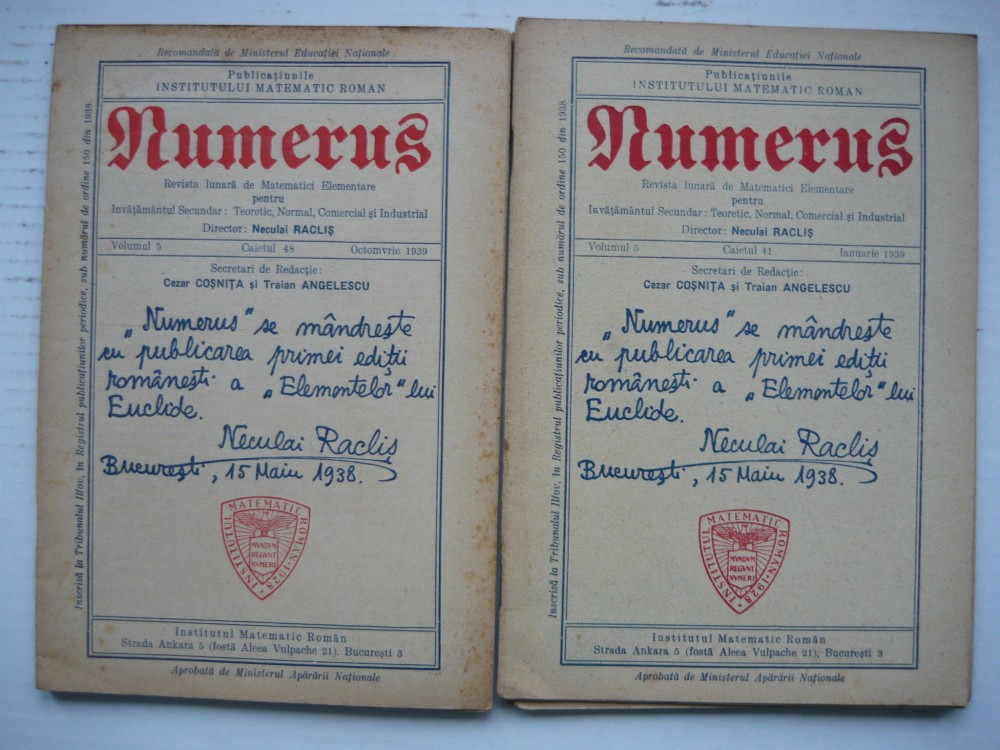 Recomandată de Ministerul Educației Naționale
Publicațiunile
INSTITUTULUI MATEMATIC ROMAN
Numerus
Revista lunară de Matematici Elementare
pentru
Invățământul Secundar: Teoretic, Normal, Comercial și Industrial
Director: Neculai RACLIȘ
Volumul 5 Caietul 48 Octomvrie 1939
Secretari de Redacție:
Cezar COȘNIȚA și Traian ANGELESCU
„Numerus" se mândrește
cu publicarea primei ediții
românești a „Elementelor" lui
Euclide.
Neculai Racliș
București, 15 Maiu 1938.
INSTITUTUL MATEMATIC ROMAN · 1928 ·
MVNDVM
REGVNT
NVMERI
Institutul Matematic Român
Strada Ankara 5 (fostă Aleea Vulpache 21). București 3
Aprobată de Ministerul Apărării Naționale
Inscrisă la Tribunalul Ilfov, în Registrul publicațiunilor periodice, sub numărul de ordine 150 din 1938.
Recomandată de Ministerul Educației Naționale
Publicațiunile
INSTITUTULUI MATEMATIC ROMAN
Numerus
Revista lunară de Matematici Elementare
pentru
Invățământul Secundar: Teoretic, Normal, Comercial și Industrial
Director: Neculai RACLIȘ
Volumul 5 Caietul 41 Ianuarie 1939
Secretari de Redacție:
Cezar COȘNIȚA și Traian ANGELESCU
„Numerus" se mândrește
cu publicarea primei ediții
românești a „Elementelor" lui
Euclide.
Neculai Racliș
București, 15 Maiu 1938.
INSTITUTUL MATEMATIC ROMAN · 1928 ·
MVNDVM
REGVNT
NVMERI
Institutul Matematic Român
Strada Ankara 5 (fostă Aleea Vulpache 21), București 3
Aprobată de Ministerul Apărării Naționale
Inscrisă la Tribunalul Ilfov, în Registrul publicațiunilor periodice, sub numărul de ordine 150 din 1938.